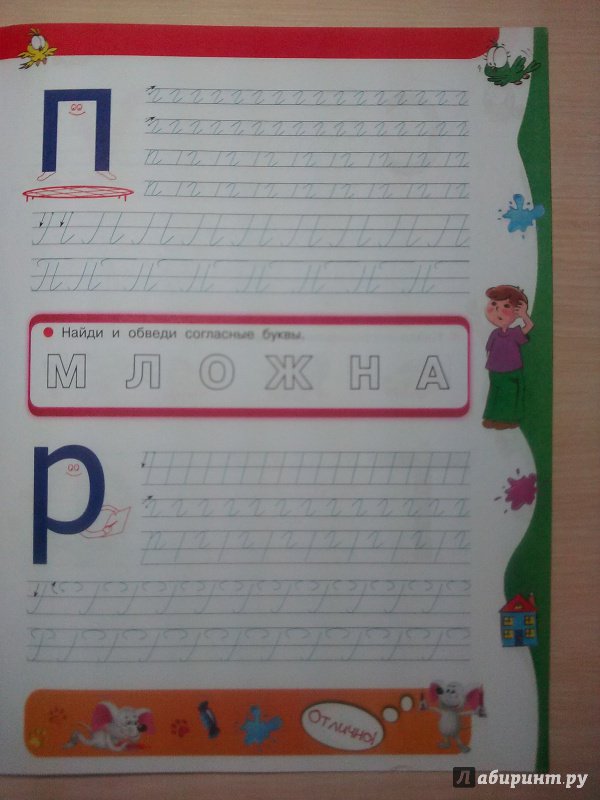 П
Найди и обведи согласные буквы.
М Л О Ж Н А
р
ОТЛИЧНО!
Лабиринт.ру